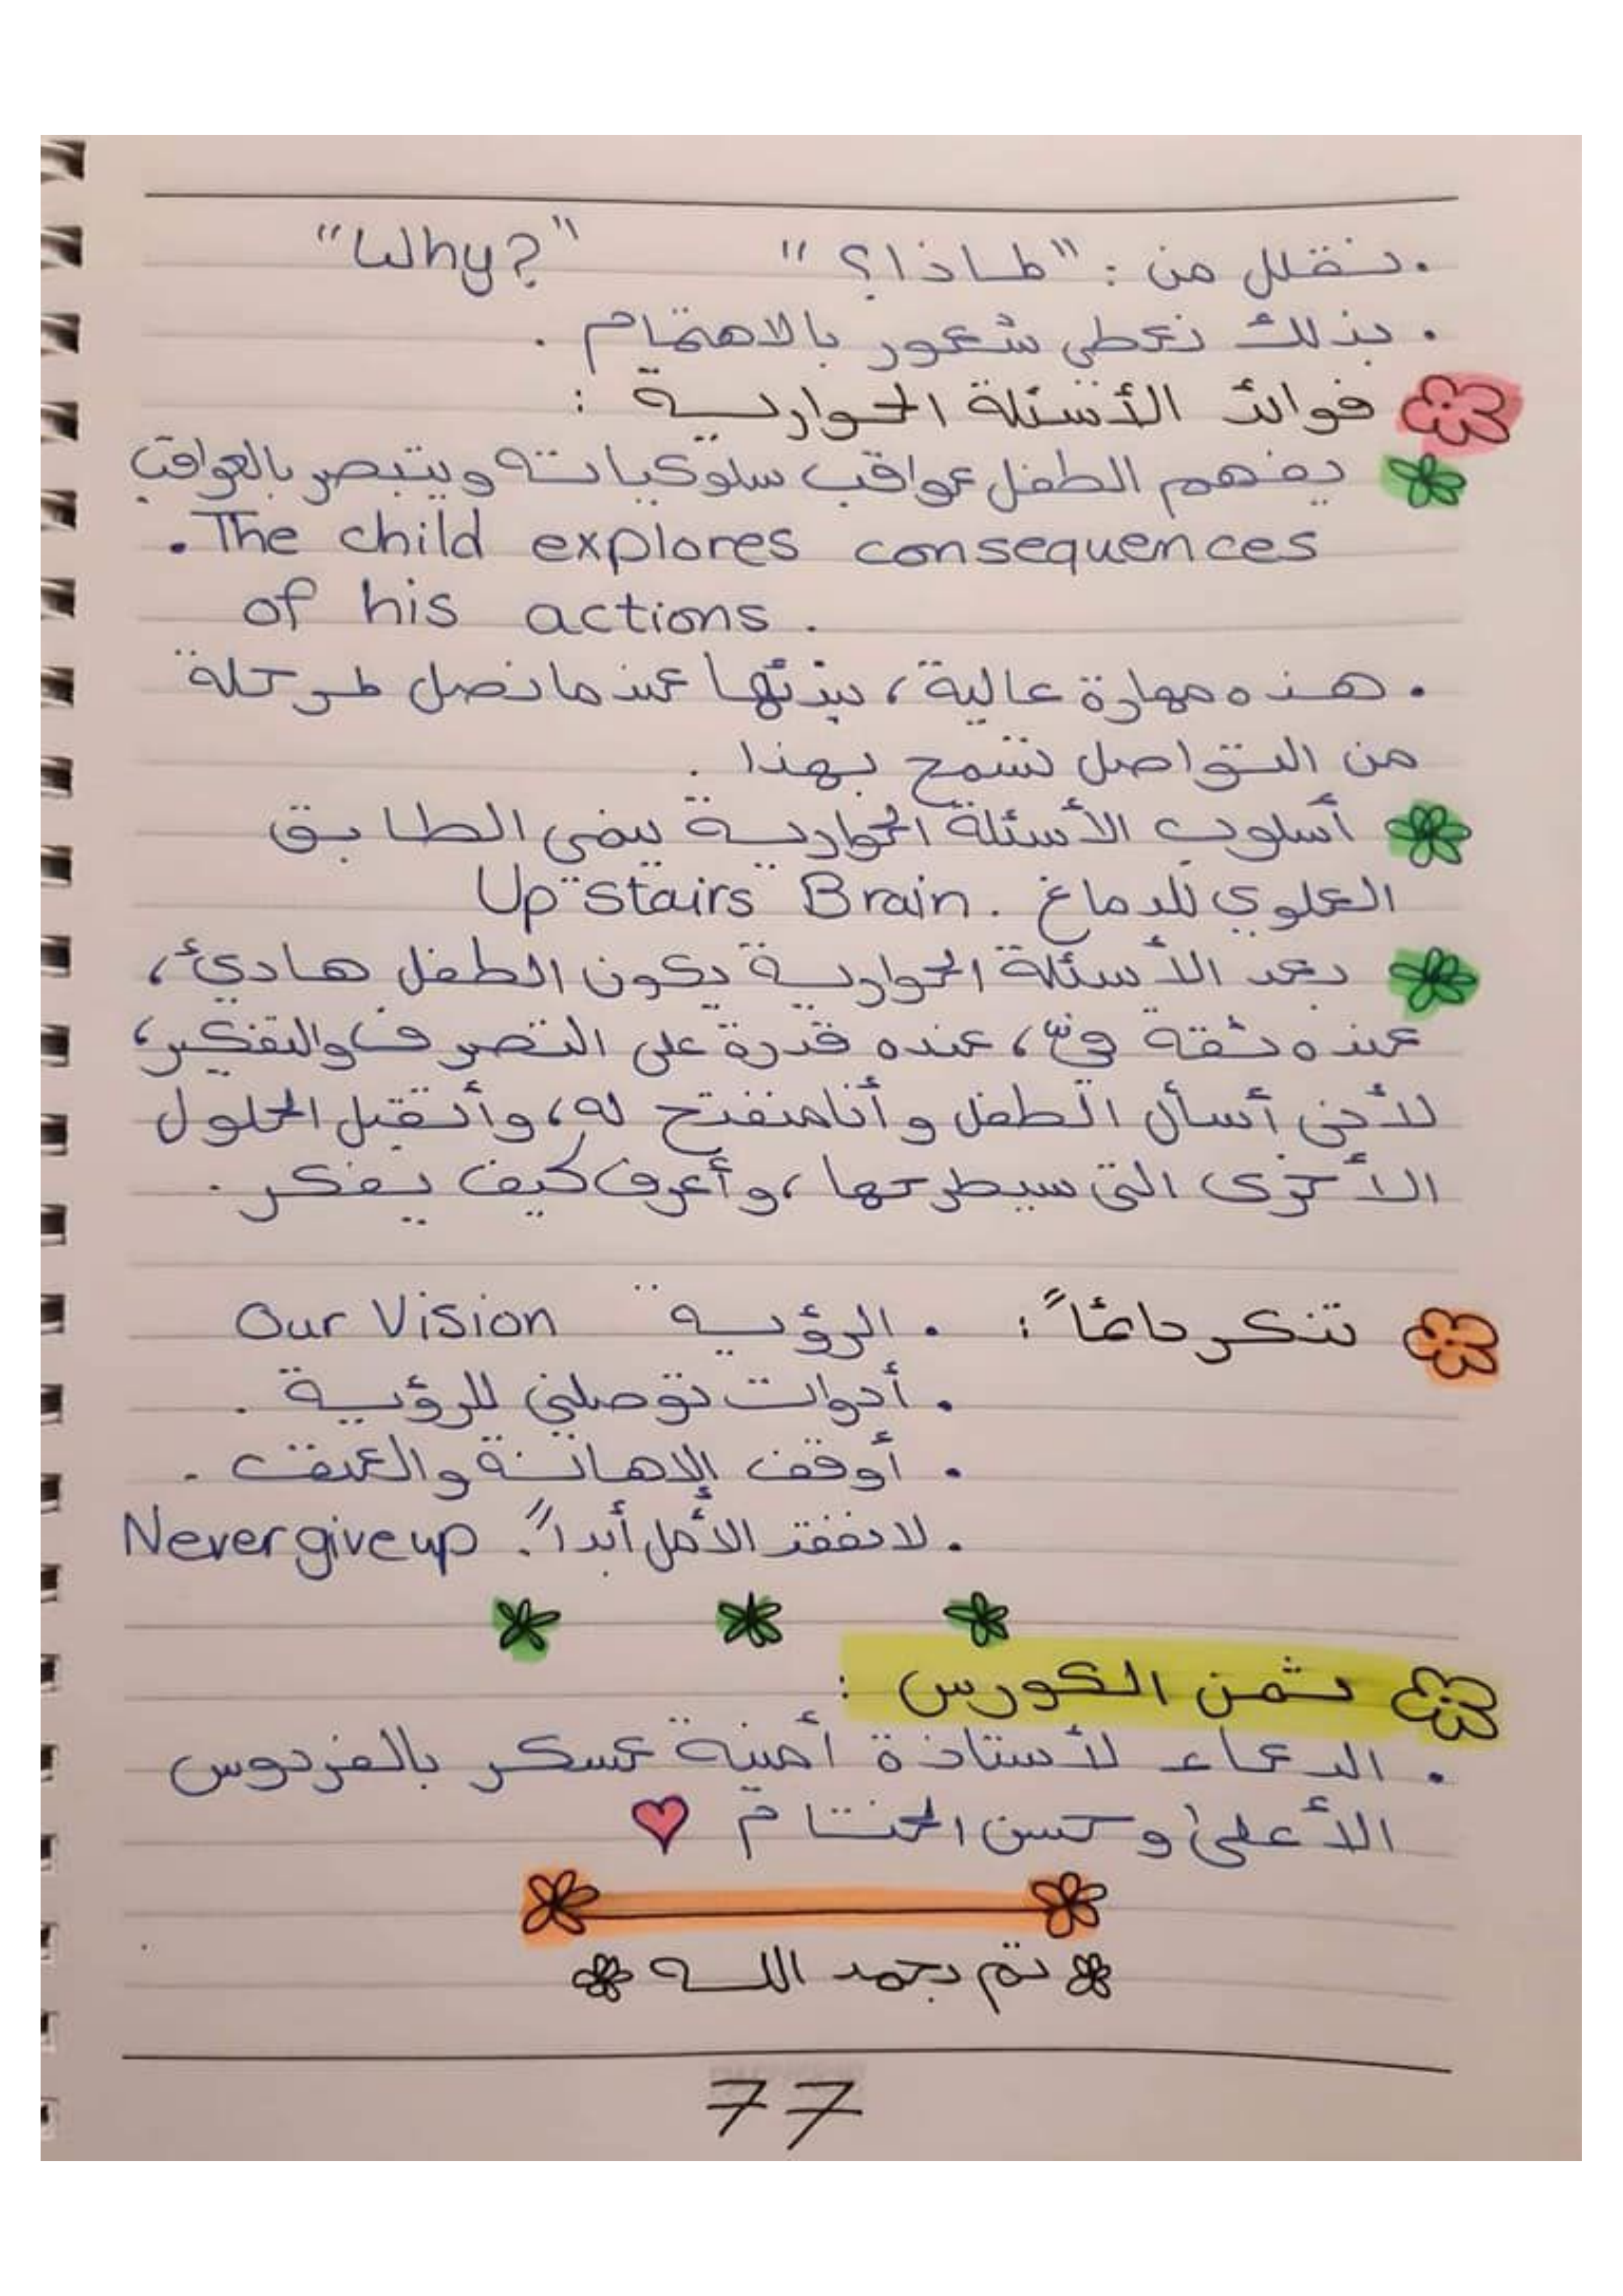 . نقلل من : "لماذا؟" "Why?"
. بذلك نعطي شعور بالاهتمام .
فوائد الأسئلة الحوارية :
يفهم الطفل عواقب سلوكياته ويتبصر بالعواقب
. The child explores consequences
of his actions .
. هذه مهارة عالية، نبدئها عندما نصل لمرحلة
من التواصل تسمح بهذا .
أسلوب الأسئلة الحوارية ينمي الطابق
العلوي للدماغ . Up stairs Brain
بعد الأسئلة الحوارية يكون الطفل هادئ،
عنده ثقة فيّ، عنده قدرة على التصرف والتفكير،
لأني أسأل الطفل وأنا منفتح له، وأتقبل الحلول
الأخرى التي سيطرحها، وأعرف كيف يفكر .
تذكر دائماً : . الرؤية Our Vision
. أدوات توصلني للرؤية .
. أوقف الإهانة والعنف .
. لا نفقد الأمل أبداً . Never give up
ثمن الكورس :
. الدعاء لأستاذة أمينة عسكر بالفردوس
الأعلى وحسن الختام
تم بحمد الله
77